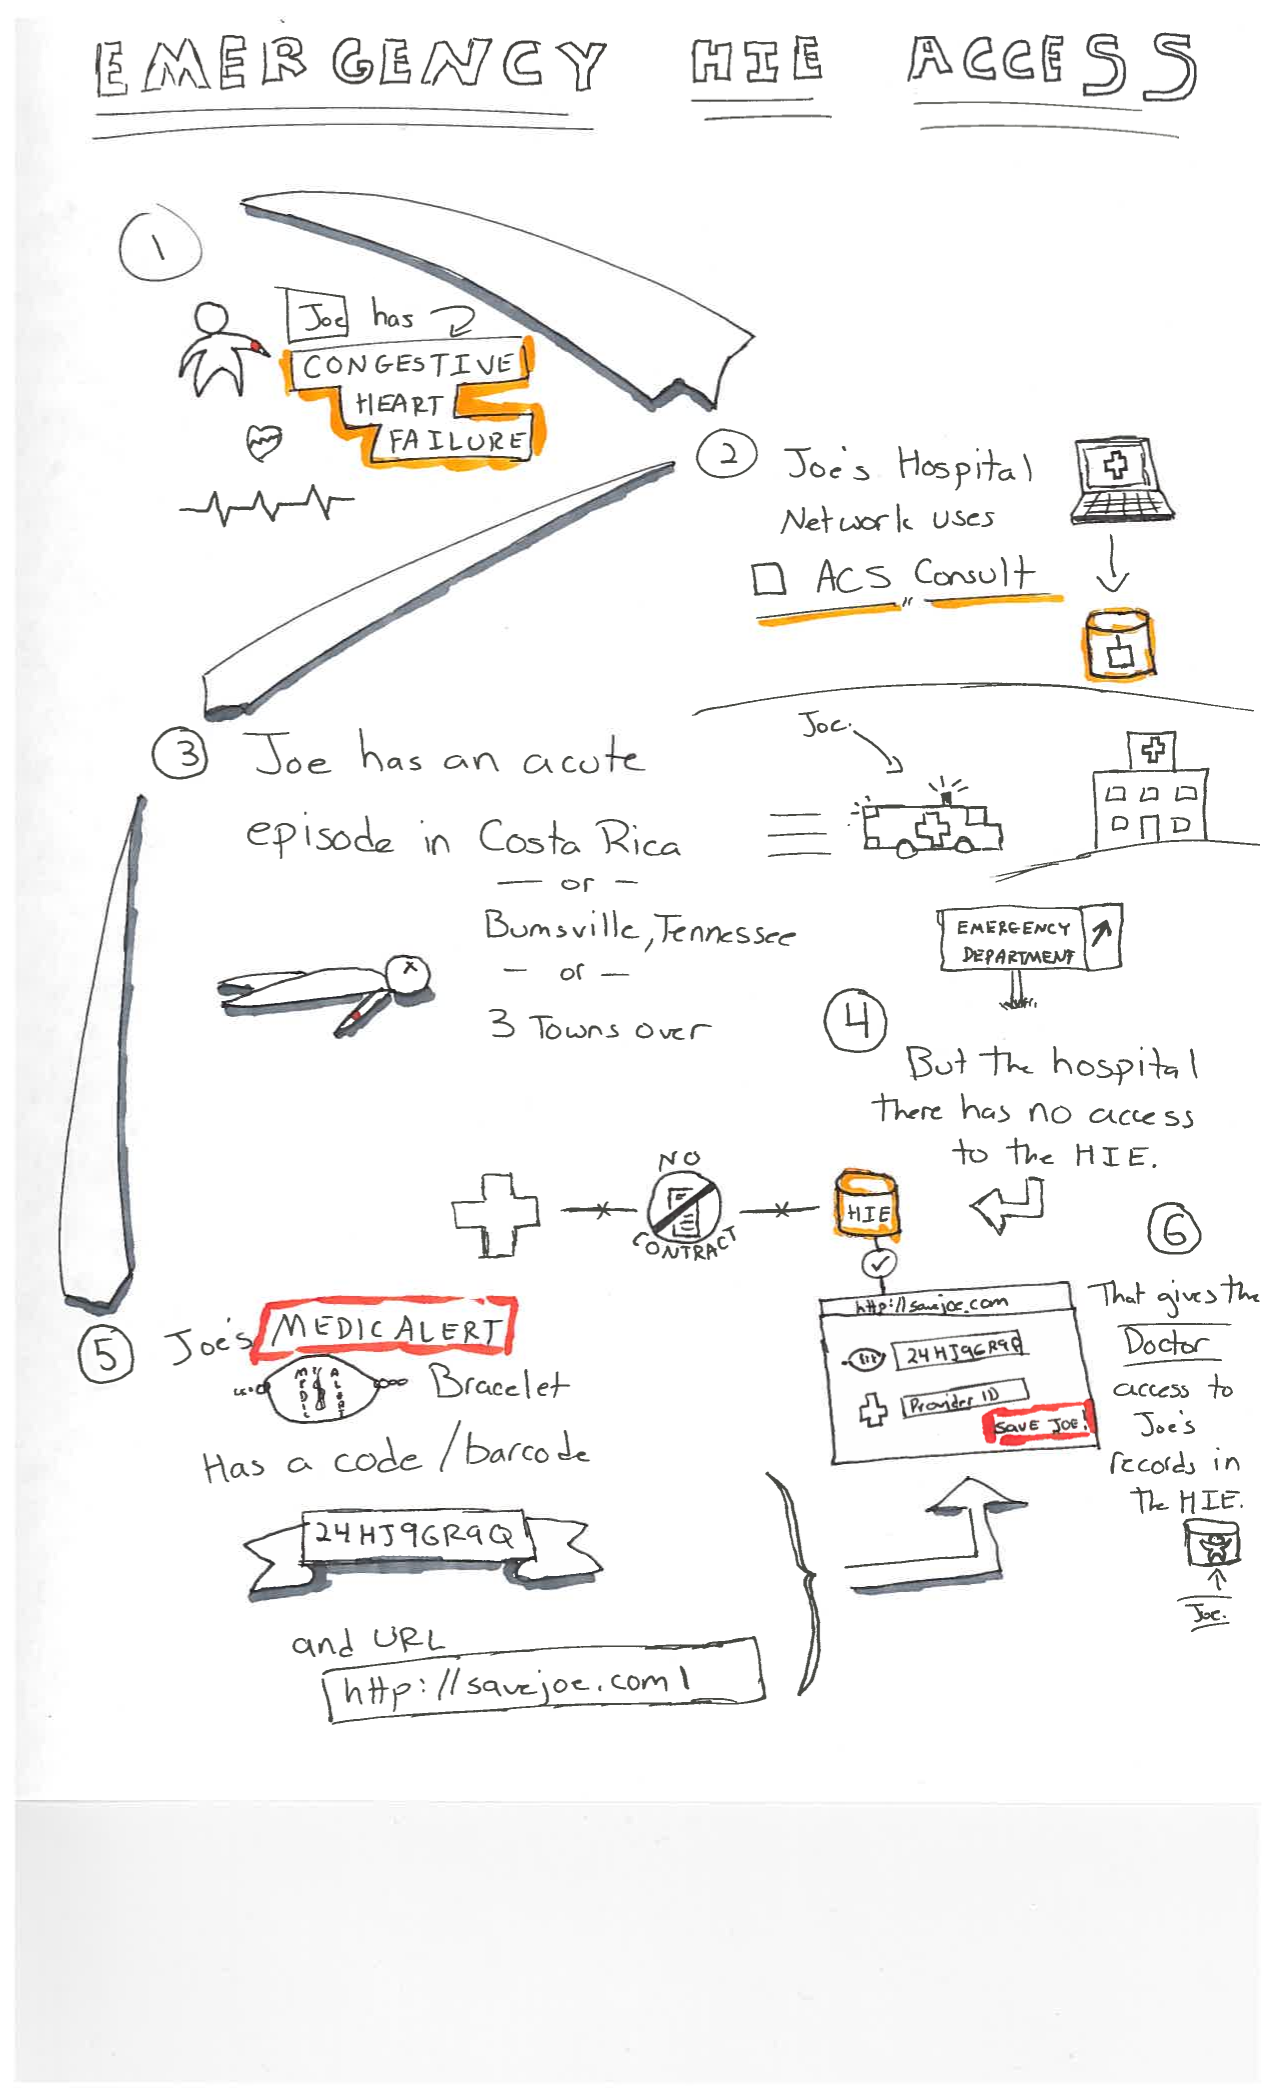 EMERGENCY HIE ACCESS
1
Joe has
CONGESTIVE
HEART
FAILURE
2
Joe's Hospital
Network uses
ACS Consult
3
Joe has an acute
episode in Costa Rica
— or —
Bumsville, Tennessee
— or —
3 Towns over
Joe.
EMERGENCY
DEPARTMENT
4
But the hospital
there has no access
to the HIE.
NO
CONTRACT
HIE
5
Joe's MEDICALERT
MEDIC ALERT
Bracelet
Has a code/barcode
24HJ96R9Q
and URL
http://savejoe.com
http://savejoe.com
24HJ96R9Q
Provider ID
SAVE JOE!
6
That gives the
Doctor
access to
Joe's
records in
the HIE.
Joe.